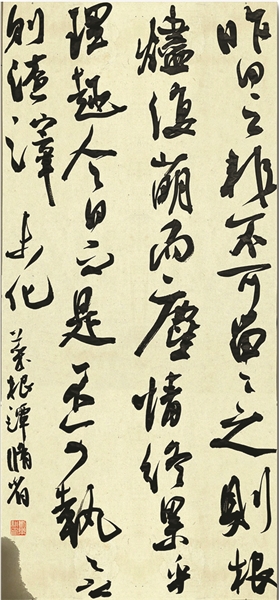 昨日之非不可留〻之則根
燼復萌而塵情終累乎
理趣今日之是不可執〻之
則渣滓未化
菜根譚脩省